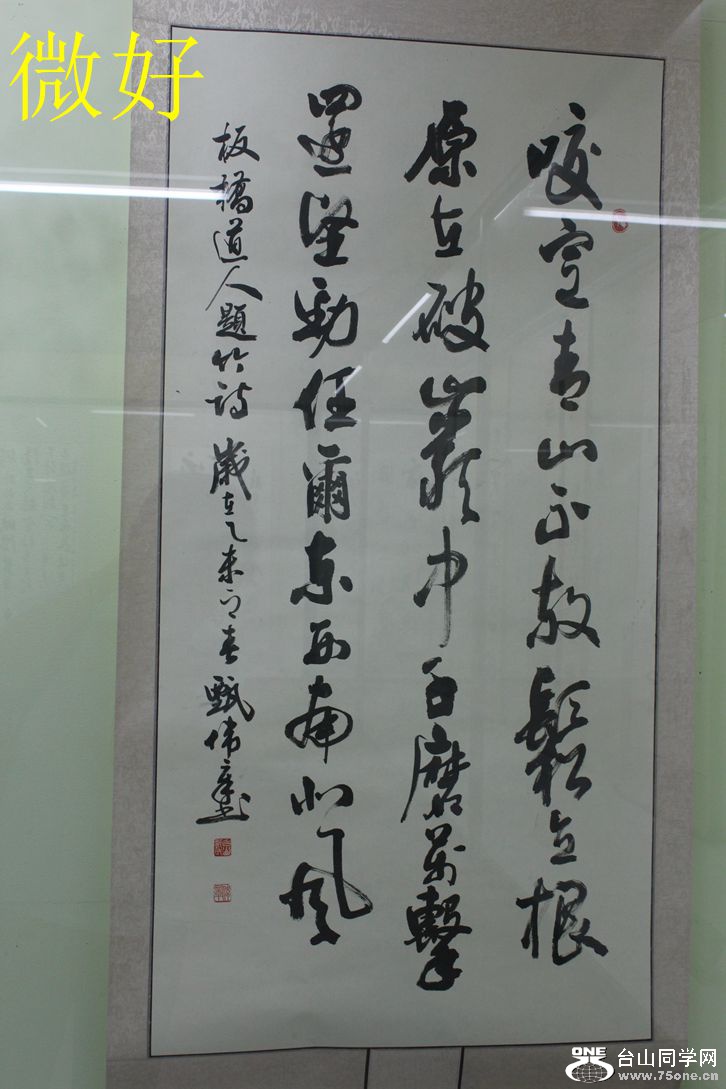 微好
咬定青山不放鬆立根
原在破巖中千磨萬擊
還堅勁任爾東西南北風
板橋道人題竹詩 歲在乙未春甄偉書
ONE 台山同学网
www.75one.cn